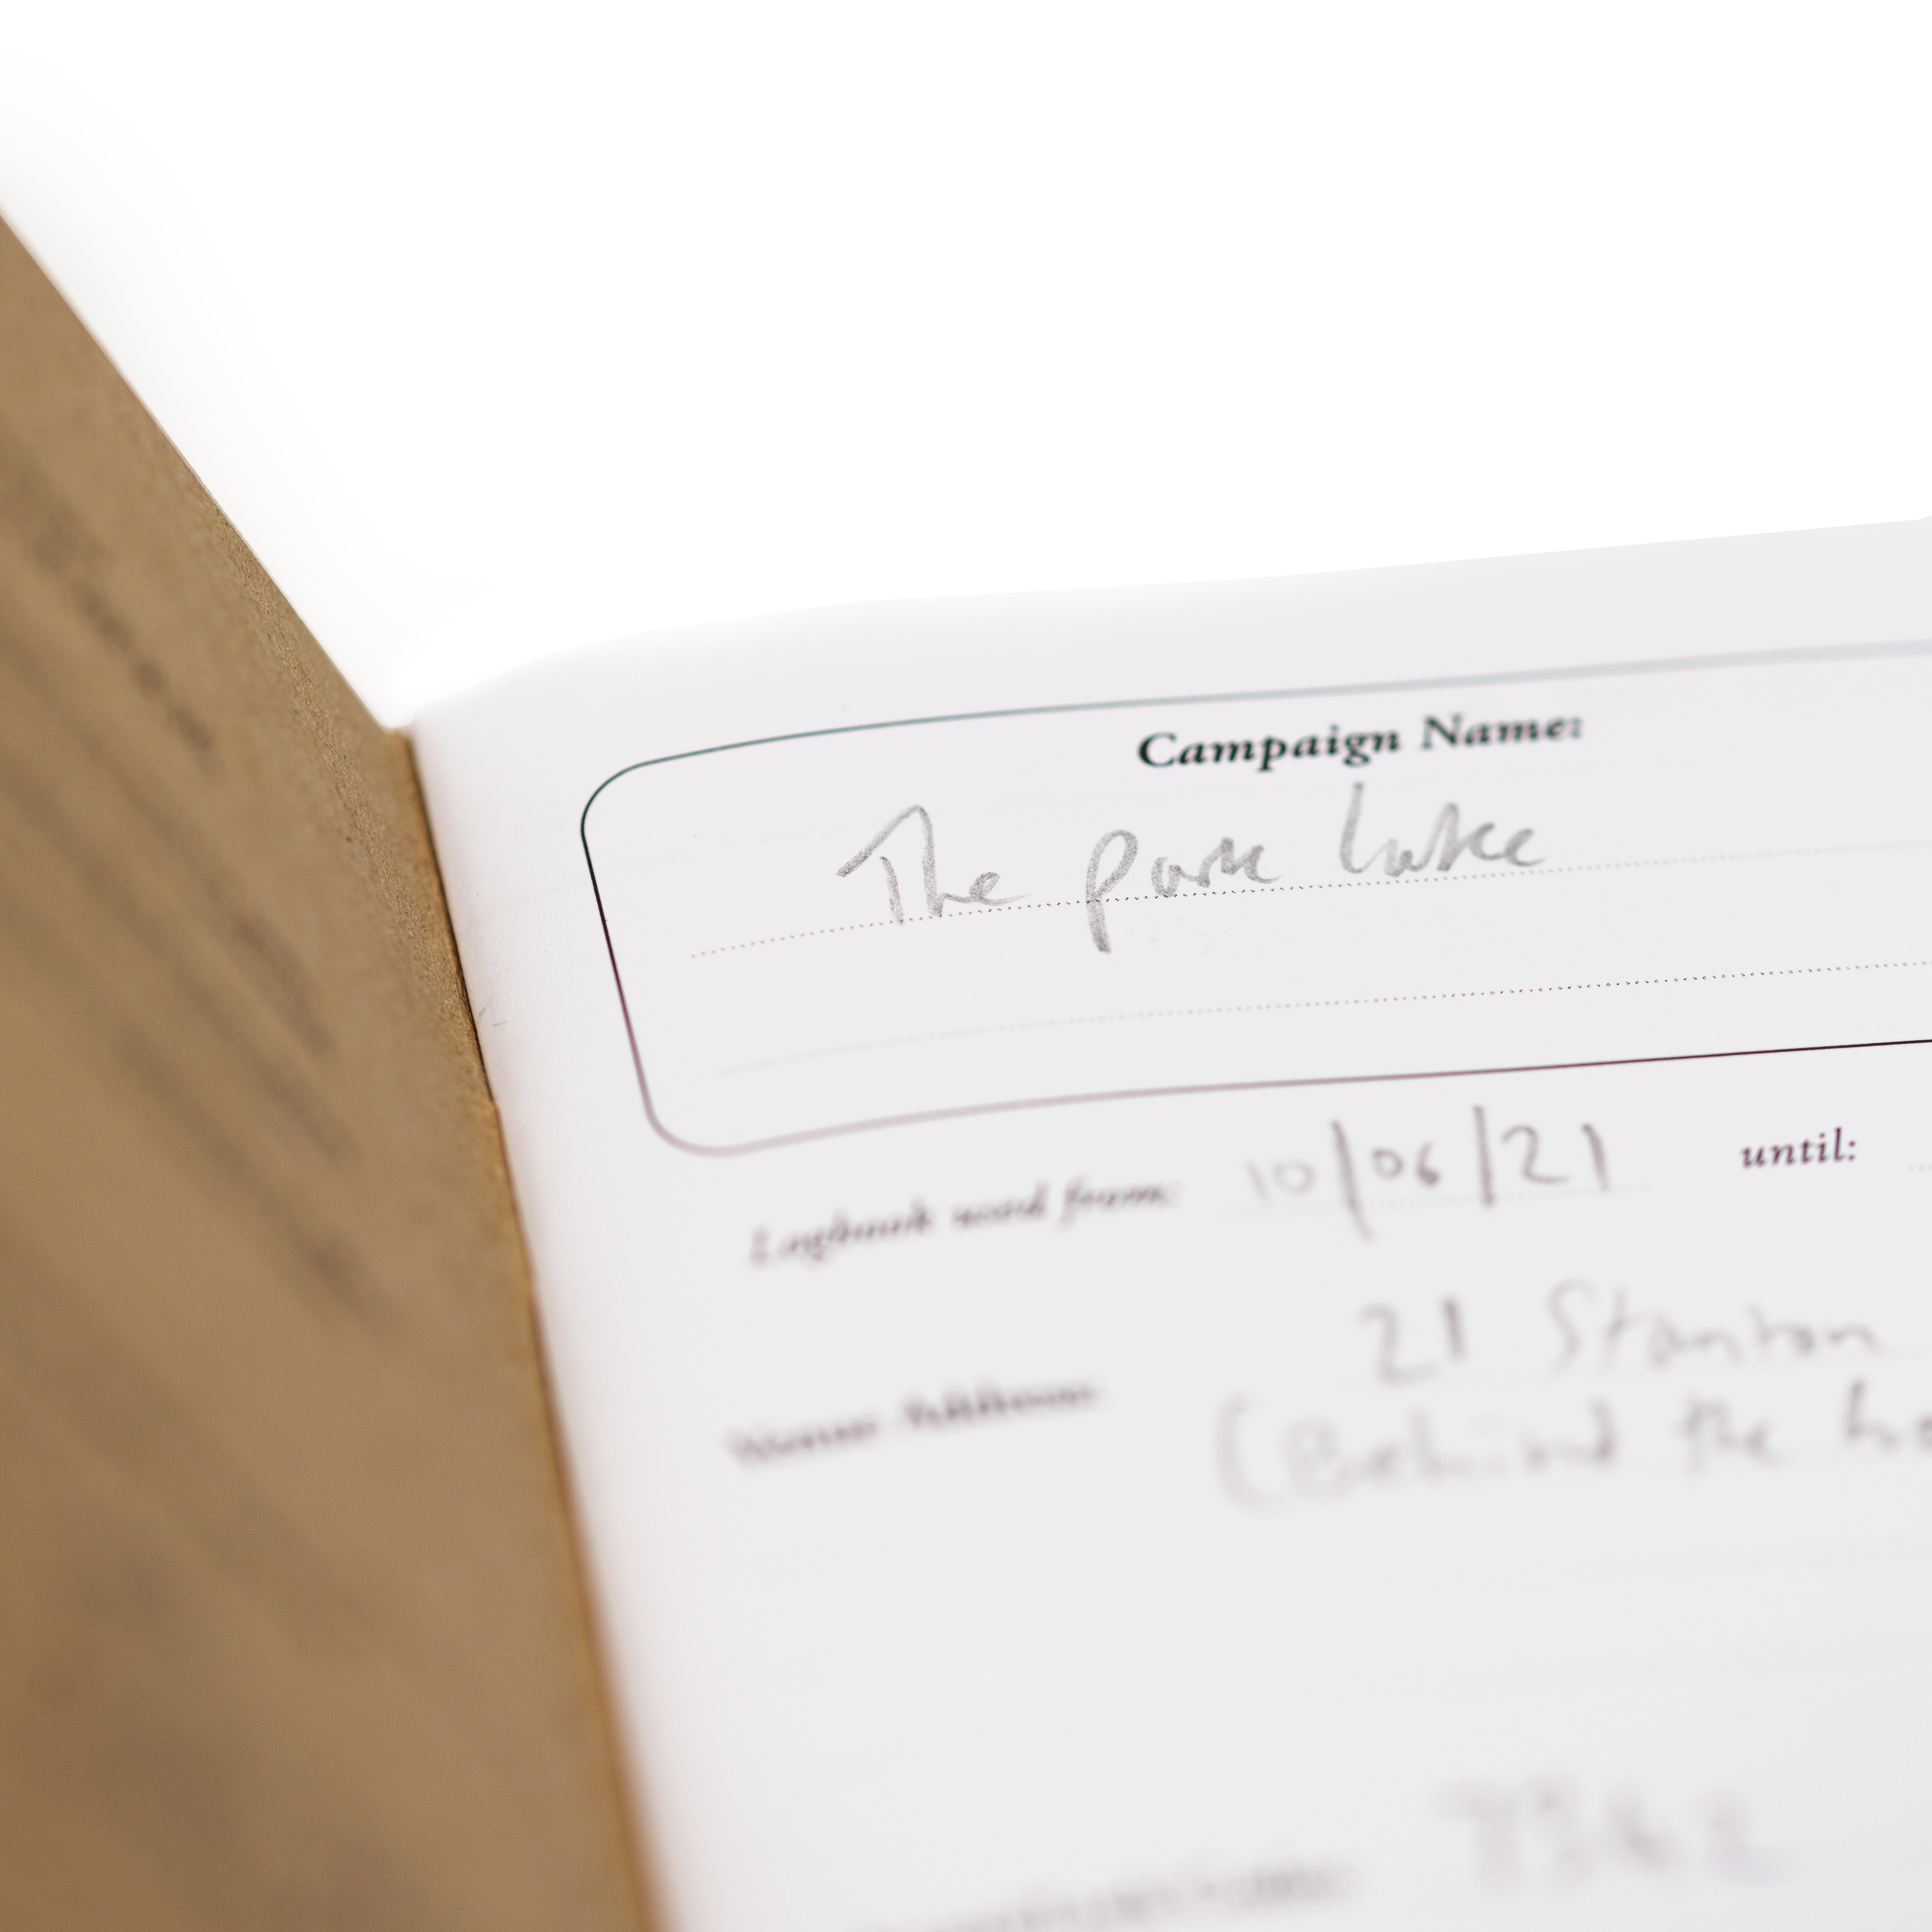 Campaign Name:
The Park Lake
Logbook used from: 10/06/21 until:
Venue Address: 21 Stanton
(Behind the